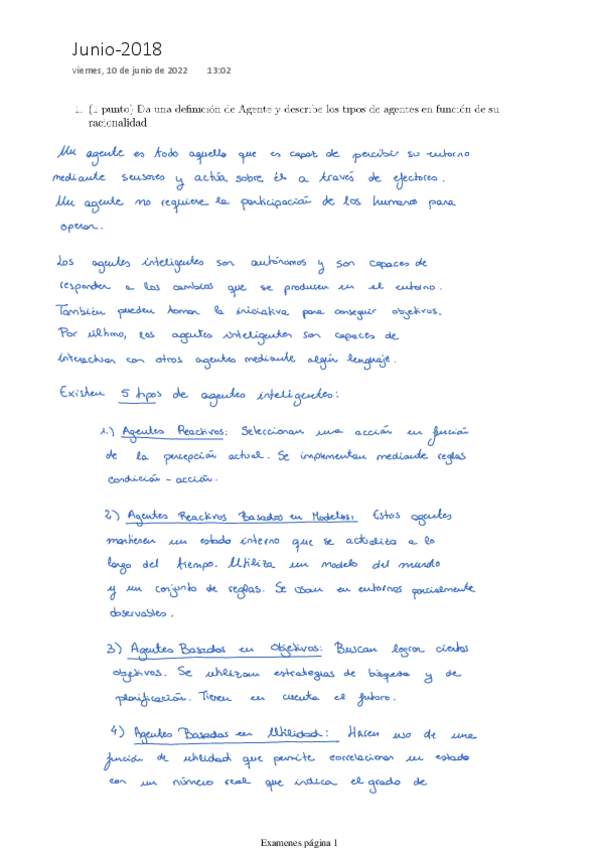 Junio-2018
viernes, 10 de junio de 2022 13:02
1. (1 punto) Da una definición de Agente y describe los tipos de agentes en función de su
racionalidad
Un agente es todo aquello que es capaz de percibir su entorno
mediante sensores y actúa sobre él a través de efectores.
Un agente no requiere la participación de los humanos para
operar.
Los agentes inteligentes son autónomos y son capaces de
responder a los cambios que se producen en el entorno.
También pueden tomar la iniciativa para conseguir objetivos.
Por último, los agentes inteligentes son capaces de
interactuar con otros agentes mediante algún lenguaje.
Existen 5 tipos de agentes inteligentes:
1.) Agentes Reactivos: Seleccionan una acción en función
de la percepción actual. Se implementan mediante reglas
condición - acción.
2) Agentes Reactivos Basados en Modelos: Estos agentes
mantienen un estado interno que se actualiza a lo
largo del tiempo. Utiliza un modelo del mundo
y un conjunto de reglas. Se usan en entornos parcialmente
observables.
3) Agentes Basados en Objetivos: Buscan lograr ciertos
objetivos. Se utilizan estrategias de búsqueda y de
planificación. Tienen en cuenta el futuro.
4) Agentes Basados en Utilidad: Hacen uso de una
función de utilidad que permite correlacionar un estado
con un número real que indica el grado de
Examenes página 1